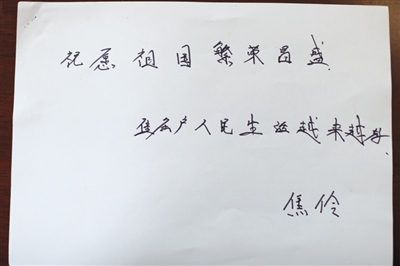 祝愿祖国繁荣昌盛.
焦庄户人民生活越来越好.
焦伶